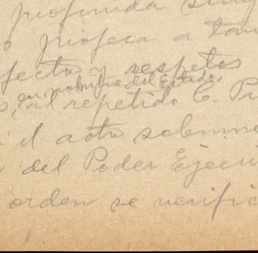 profunda simp
o profesa a tan
fecto y respetos
en nombre del Estado,
s, al repetido C. Pr
n el acto solemne
del Poder Ejecu
orden se verific